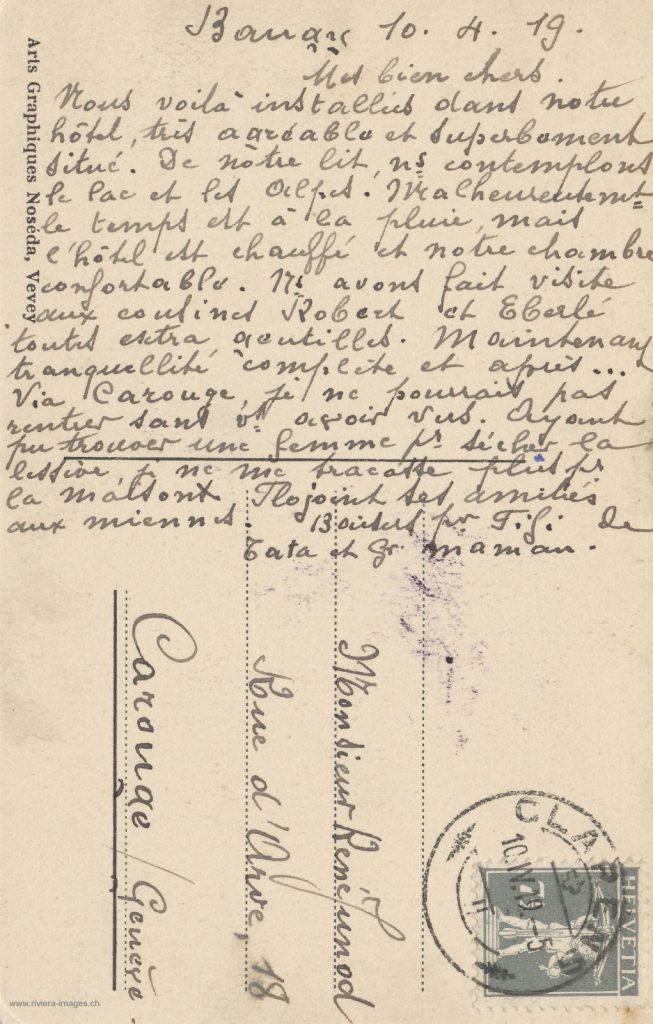 Baugy 10. 4. 19.
Mes bien chers.
Nous voilà installées dans notre
hôtel, très agréable et superbement
situé. De nôtre lit, ns contemplons
le lac et les Alpes. Malheureusemt
le temps est à la pluie, mais
l'hôtel est chauffé et notre chambre
confortable. Ns avons fait visite
aux cousines Robert et Eberlé
toutes extra gentilles. Maintenant
tranquellité complète et après...
Via Carouge, je ne pourrais pas
rentrer sans vs avoir vus. Ayant
pu trouver une femme pr sécher la
lessive, je ne me tracasse plus pr
la maison. Flo joint ses amitiés
aux miennes. Baisers pr Fifi de
Tata et Gr. maman.
Arts Graphiques Noséda, Vevey
Monsieur René Junod
Rue d'Arve, 18
Carouge / Genève.
CLARENS
10.IV.19.-5
HELVETIA
7½
www.riviera-images.ch